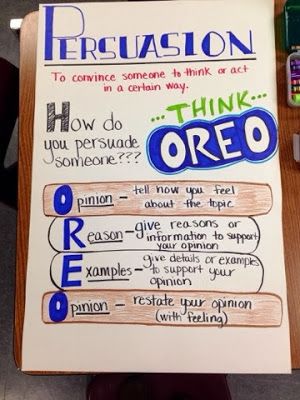 PERSUASION
To convince someone to think or act
in a certain way.
How do
you persuade
someone???
...THINK...
OREO
Opinion - tell how you feel
about the topic
Reason - give reasons or
information to support
your opinion
Examples - give details or examples
to support your
opinion
Opinion - restate your opinion
(with feeling)